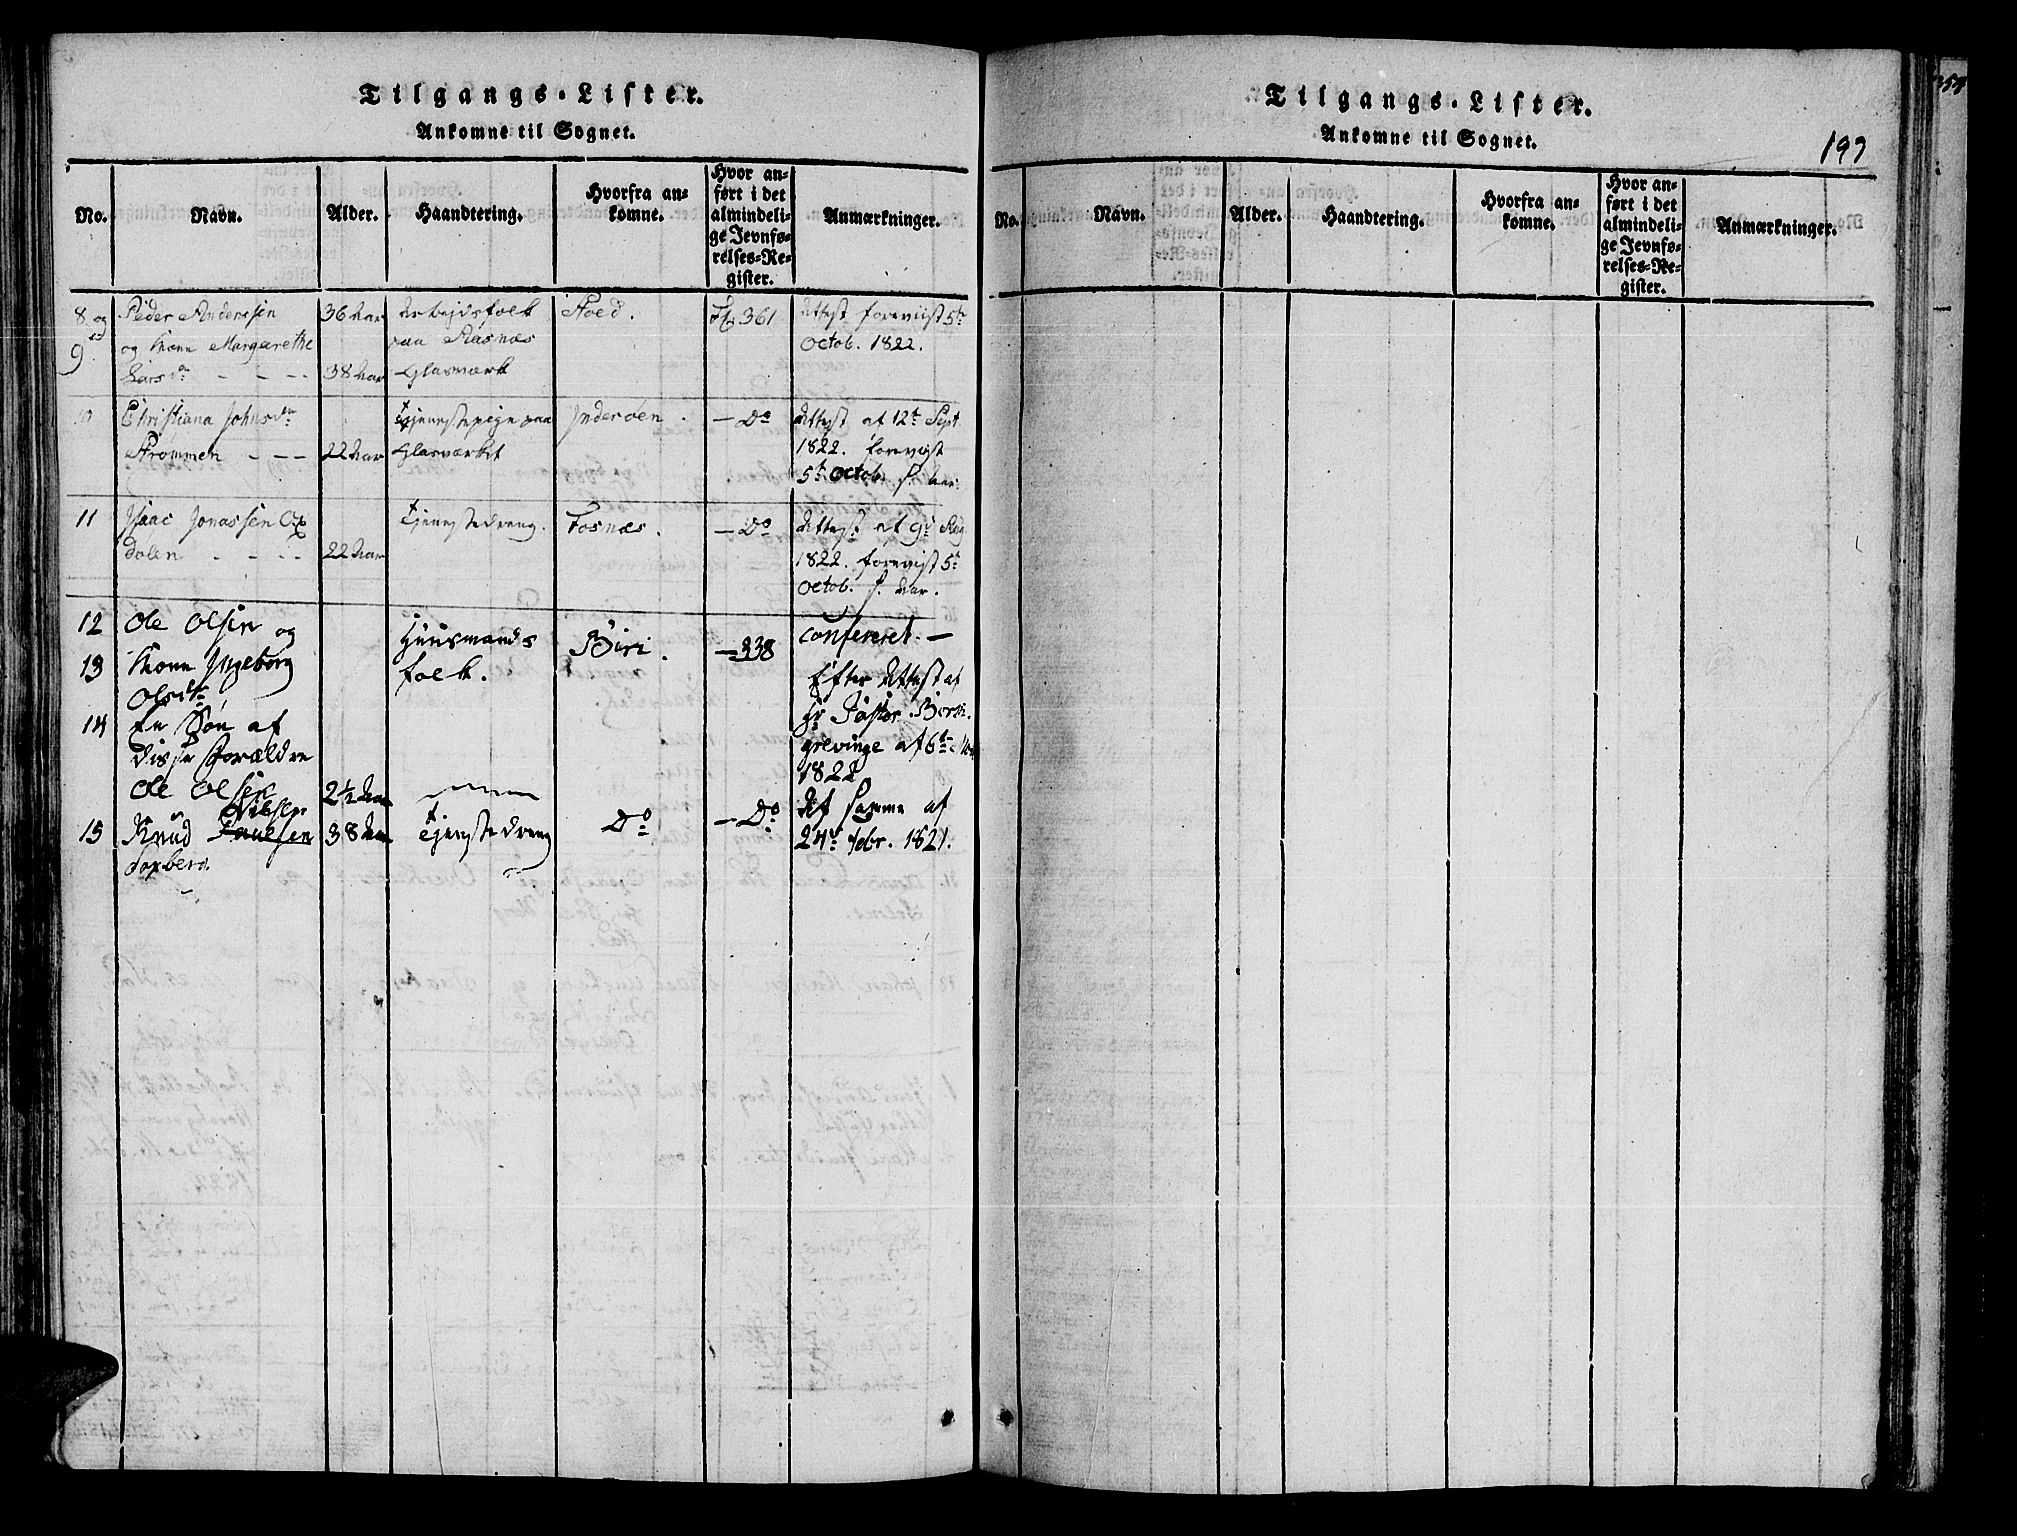 Tilgangs-Lister.
Ankomne til Sognet.
No.
Navn.
Alder.
Haandtering.
Hvorfra an-
komne.
Hvor an-
ført i det
almindeli-
ge Jevnfø-
relses-Re-
gister.
Anmærkninger.
8 og
9
Peder Anderssen
og Kone Margarethe
Larsdr
36 Aar
38 Aar
Arbejdsfolk
paa
Glasværk
Stoed.
361
Attest foreviist 5te
Octob. 1822.
Christiana Johnsdr
Strømmen
22 Aar
Tjenestepige paa
Glasværket
Inderøen.
- Do
Attest af 12te Sept
1822. foreviist
5te Octob. s. Aar.
11
Isaac Jonassen
dalen
22 Aar
Tjenestedreng.
Fosnæs.
- Do
Attest af 9de
1822. forevist 5te
Octob. s. Aar.
12
Ole Olsen og
13
Kone Ingeborg
Olsdr
Huusmands
folk.
Biri.
- 338
confereret. -
Efter Attest af
Hr Pastor
grevinge af 6te
1822
14
En Søn af
disse Forældre
Ole Olsen
2½ Aar
15
Knud Nielsen
38 Aar
Tjenestedreng
Do
- Do
Att samme af
24de 7br. 1821.
Tilgangs-Lister.
Ankomne til Sognet.
197
No.
Navn.
Alder.
Haandtering.
Hvorfra an-
komne.
Hvor an-
ført i det
almindeli-
ge Jevnfø-
relses-Re-
gister.
Anmærkninger.